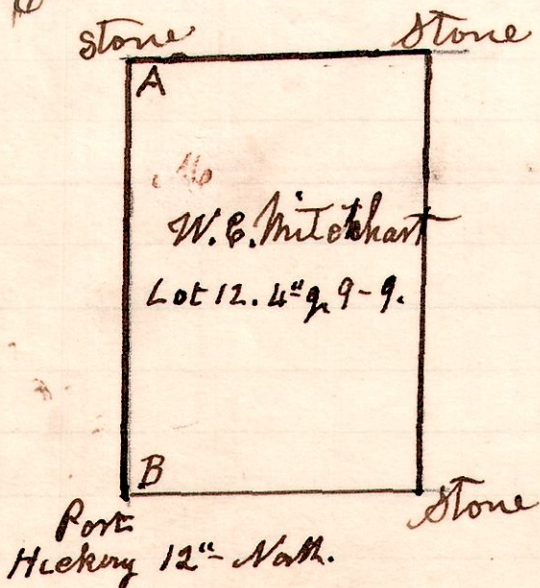 Stone Stone
A
W. E. Mitchhart
Lot 12. 4" q. 9-9.
B
Post Stone
Hickory 12" North.